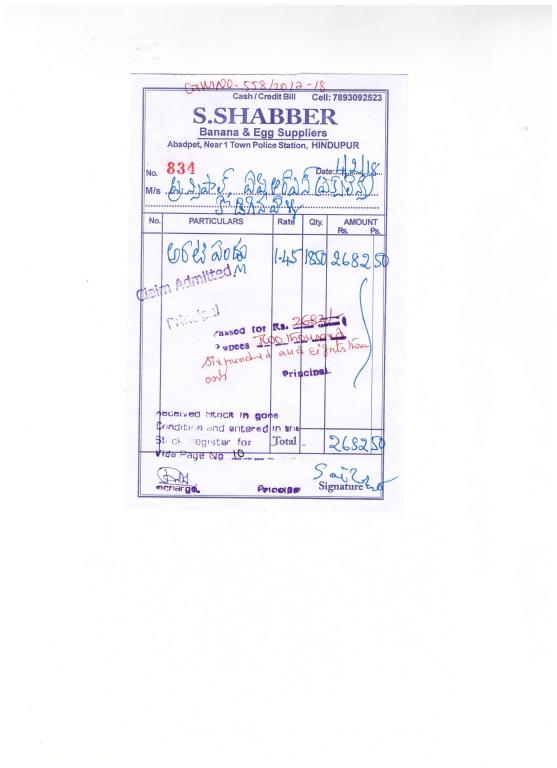 558/2017-18
Cash / Credit Bill Cell: 7893092523
S.SHABBER
Banana & Egg Suppliers
Abadpet, Near 1 Town Police Station, HINDUPUR
No. 834 Date: 1/2/18
M/s ప్రిన్సిపాల్
No. PARTICULARS Rate Qty. AMOUNT
Rs. Ps.
అరటి పండు 1.45 1850 2682 50
Claim Admitted
Principal
Passed for Rs. 2682/-
Rupees Two thousand
Six hundred and eighty two
only
Principal
Received Stock in good
Condition and entered in the
Stock Register for
Total 2682 50
Vide Page No 10
Incharge Principal Signature